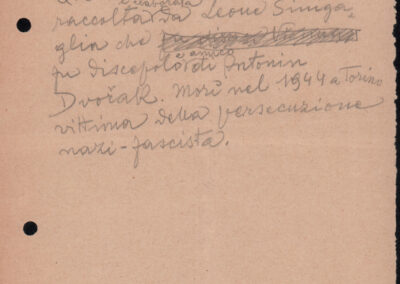 e elaborata
raccolta da Leone Siniga-
glia che
e amico
fu discepolo di Antonin
Dvořak. Morì nel 1944 a Torino
vittima della persecuzione
nazi-fascista.